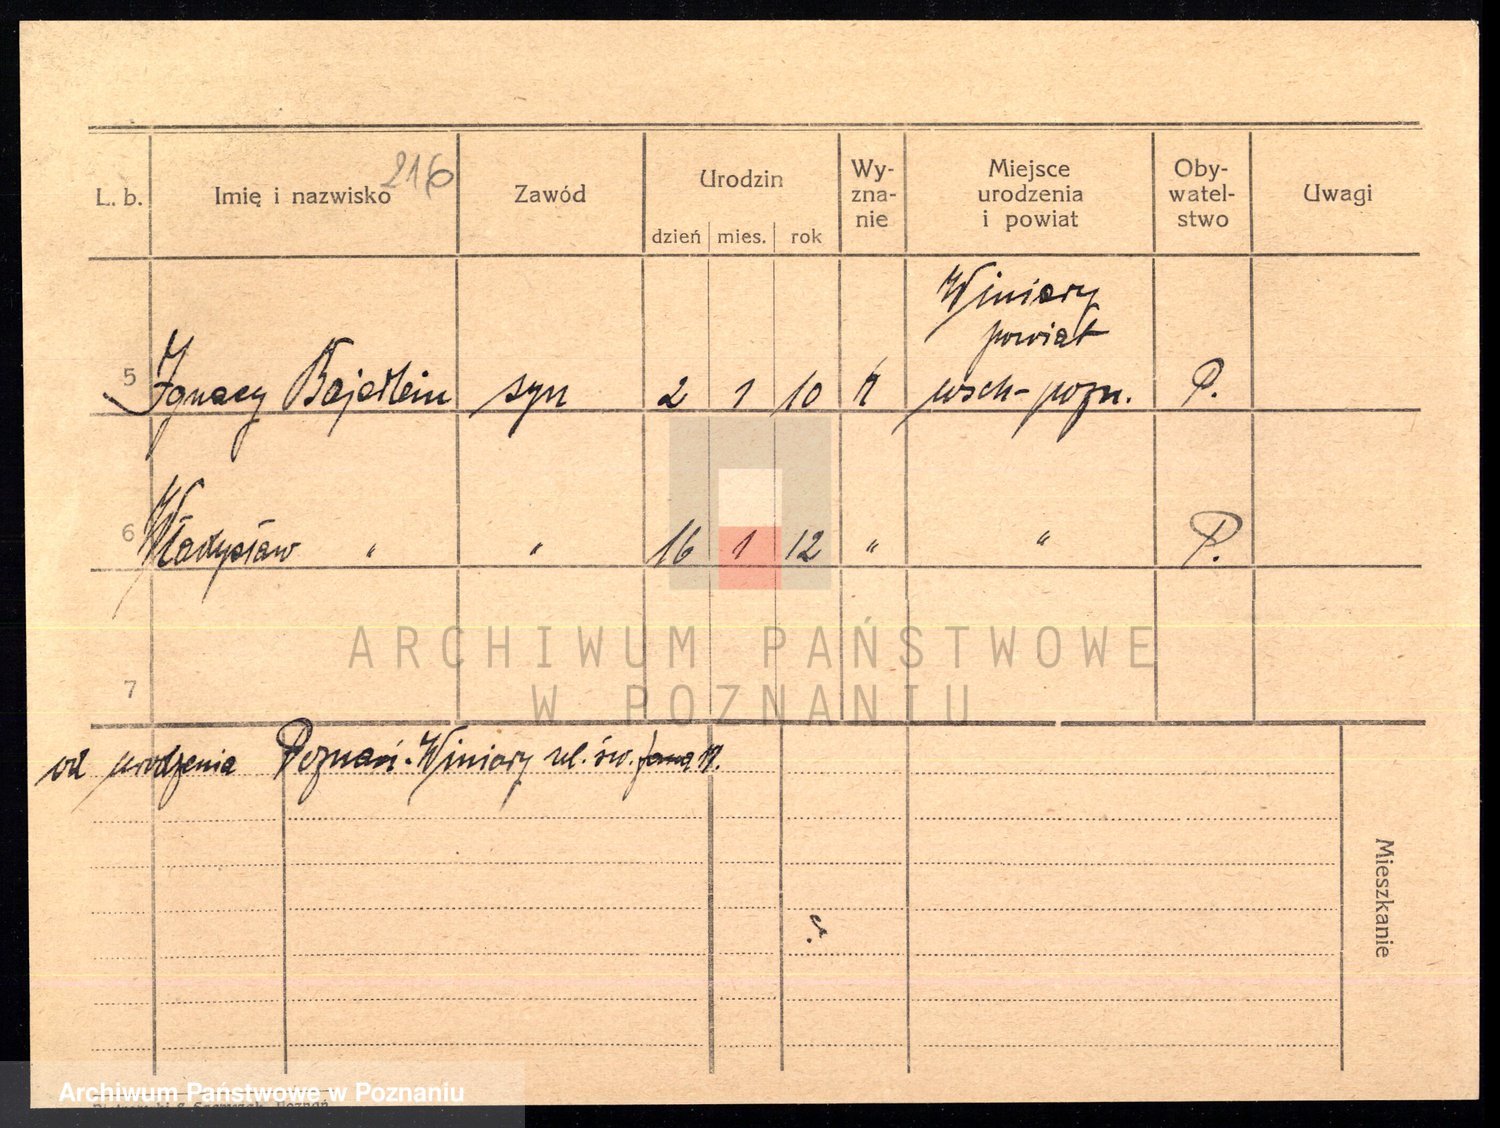 216
L. b. Imię i nazwisko Zawód Urodzin Wy-zna-nie Miejsce urodzenia i powiat Oby-watel-stwo Uwagi
dzień mies. rok
Winiary
powiat
5 Ignacy Bajerlein syn 2 1 10 k wsch-pozn. P.
6 Władysław " " 16 1 12 " " P.
ARCHIWUM PAŃSTWOWE
W POZNANIU
7
od urodzenia Poznań-Winiary ul. św. Jana
Mieszkanie
Archiwum Państwowe w Poznaniu
Poznań